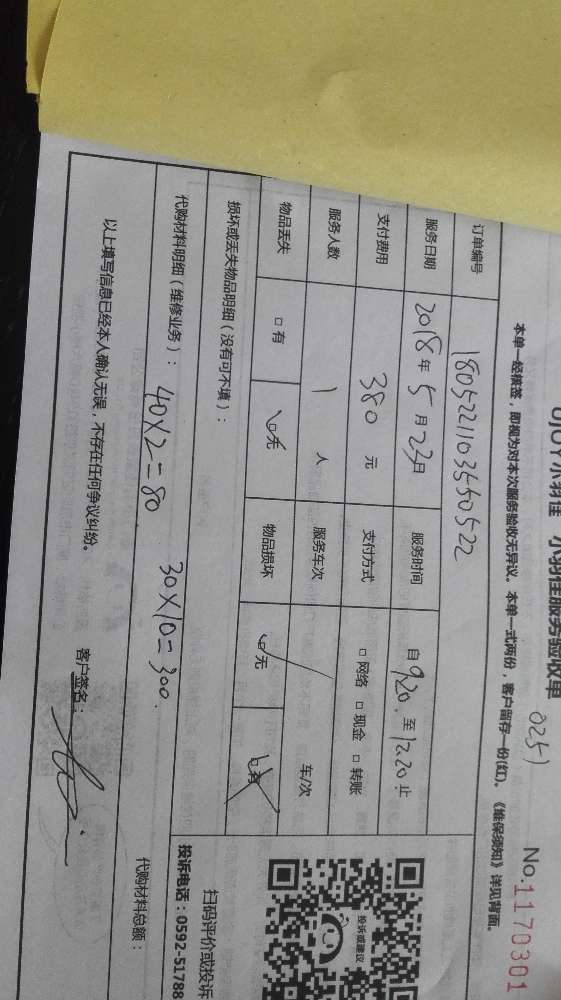 UJOY小羽佳 小羽佳服务验收单
025)
No.1170301
本单一经核签，即视为对本次服务验收无异议。本单一式两份，客户留存一份(红)。《维保须知》详见背面。
订单编号 180522110355050522
服务日期 2018年5月23日 服务时间 自9:20至12:20止
支付费用 380 元 支付方式 □网络 □现金 □转账
服务人数 1 人 服务车次 / 车/次
物品丢失 □有 ☑无 物品损坏 ☑无 □有
损坏或丢失物品明细（没有可不填）：
代购材料明细（维修业务）： 40×2=80 30×10=300.
代购材料总额：
以上填写信息已经本人确认无误，不存在任何争议纠纷。
客户签名：
投诉或建议
扫码评价或投诉
投诉电话：0592-51788